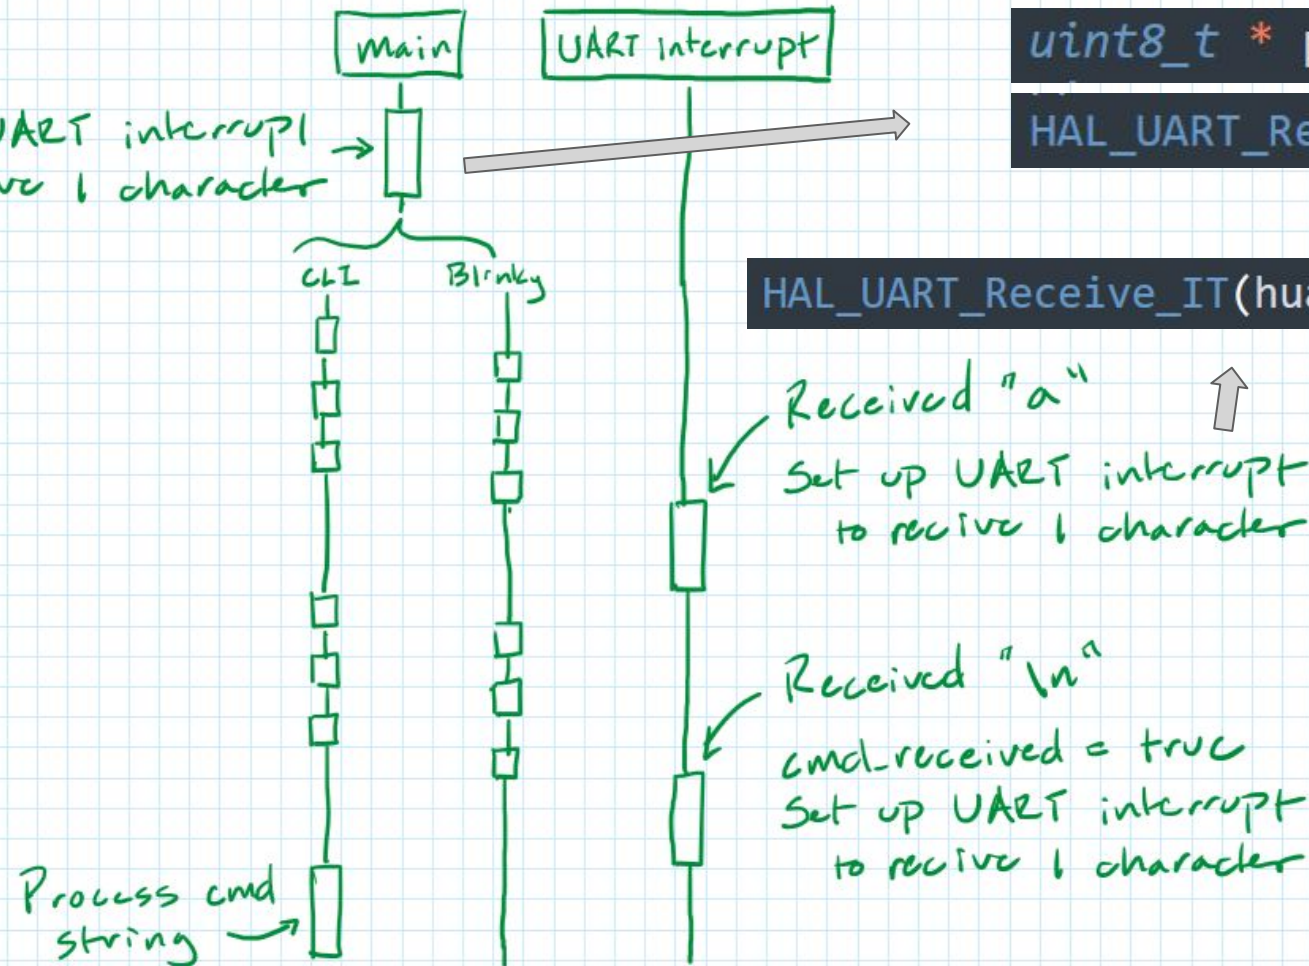 main
UART interrupt
uint8_t * p
HAL_UART_Re
UART interrupt
1 character
CLI
Blinky
HAL_UART_Receive_IT(hua
Received "a"
Set up UART interrupt
to recive 1 character
Received "\n"
cmd_received = true
Set up UART interrupt
to recive 1 character
Process cmd
string